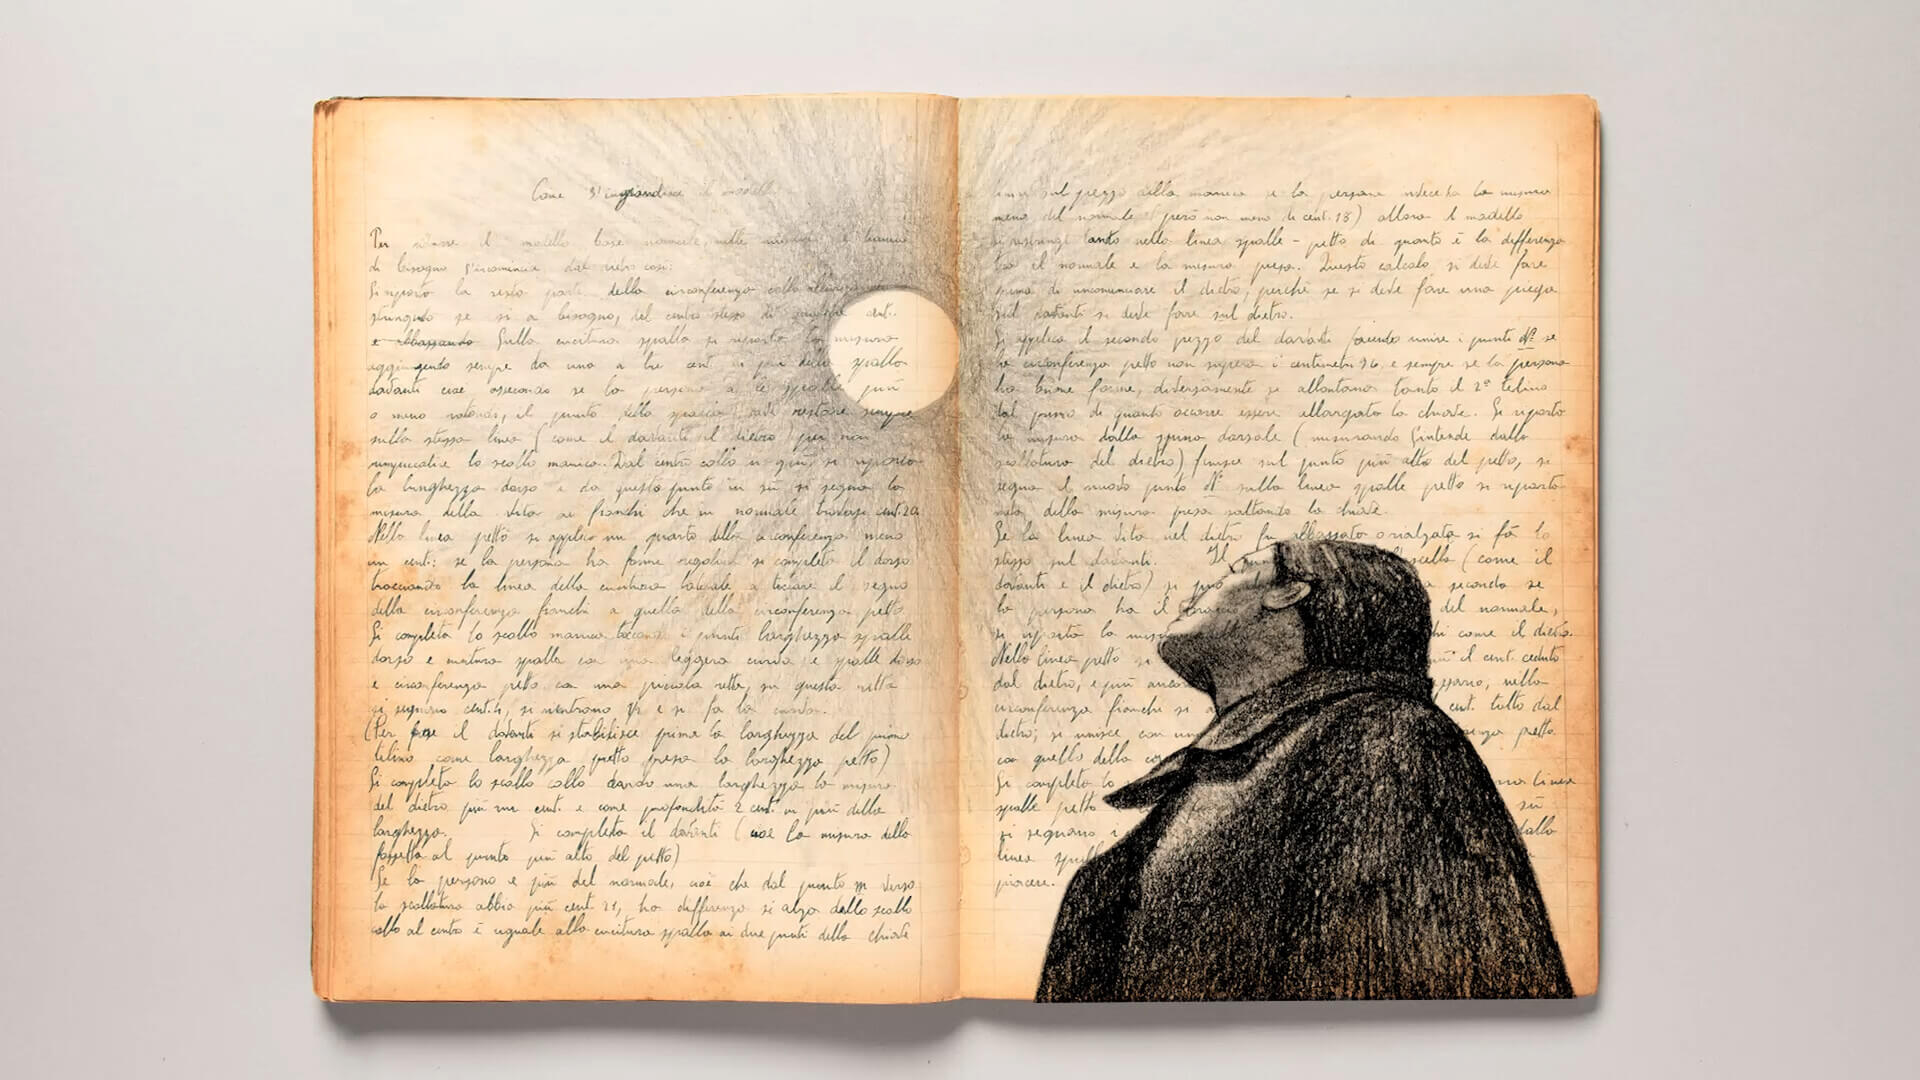 Come s'ingrandisce il modello
Per il modello base normale, nelle misure e
di bisogno s'incomincia dal dietro così:
Si riporta la sesta parte della circonferenza collo
se si a bisogno, del centro stesso di cent.
e abbassando Sulla cucitura spalla si riporta la misura
aggiungendo sempre da uno a tre cent. in più della spalla
davanti cioè a secondo se la persona a le spalle più
o meno rotonde, il punto della spalla deve restare sempre
sulla stessa linea (come il davanti il dietro) per non
lo scollo manica. Dal centro collo in giù si riporta
la lunghezza dorso e da questo punto in sù si segna la
misura della vita ai fianchi che in normale trovasi cent. 20
Nella linea petto si applica un quarto della circonferenza meno
un cent: se la persona ha forme regolari si completa il dorso
tracciando la linea della cucitura laterale a il segno
della circonferenza fianchi a quella della circonferenza petto.
Si completa lo scollo manica toccando i punti larghezza spalle
dorso e metura spalla con una leggera curva e spalle dorso
e circonferenza petto con una piccola retta, su questa retta
si segnano cent. 4, si rientrano 1/2 e si fa la curva.
(Per fare il davanti si stabilisce prima la larghezza del primo
telino come larghezza petto presa la larghezza petto)
Si completa lo scollo collo dando una larghezza la misura
del dietro più un cent. e come profondità 2 cent. in più della
larghezza. Si completa il davanti (cioè la misura della
fossetta al punto più alto del petto)
Se la persona e più del normale, cioè che dal punto verso
la scollatura abbia più cent. 21, ha differenza si alza dallo scollo
collo al centro è uguale alla cucitura spalla ai due punti della chiave
linea sul pezzo della manica se la persona la misura
meno del normale (però non meno di cent. 18) allora il modello
si restringe tanto nella linea spalle - petto di quanto è la differenza
tra il normale e la misura presa. Questo calcolo si deve fare
prima di incominciare il dietro, perchè se si deve fare una piega
sul davanti si deve fare sul dietro.
Si applica il secondo pezzo del davanti facendo unire i punti se
la circonferenza petto non supera i centimetri 96, e sempre se la persona
ha buone forme, diversamente si allontana tanto il 2° telino
dal primo di quanto occorre essere allargata la chiave. Si riporta
la misura dalla spina dorsale (misurando s'intende dalla
scollatura del dietro) finisce sul punto più alto del petto, si
segna il nuovo punto sulla linea spalle petto si riporta
della misura presa saltando la chiave.
Se la linea vita nel dietro fu abbassata o rialzata si fà lo
stesso sul davanti. Il scella (come il
davanti e il dietro) si può a seconda se
la persona ha il braccio del normale,
si riporta la come il dietro.
Nella linea petto si il cent. ceduto
dal dietro, e più ancora nella
circonferenza fianchi si a cent. tolto dal
dietro; si unisce con petto
con quello della
Si completa lo linea
spalle petto sù
si segnano i dallo
linea
piacere.